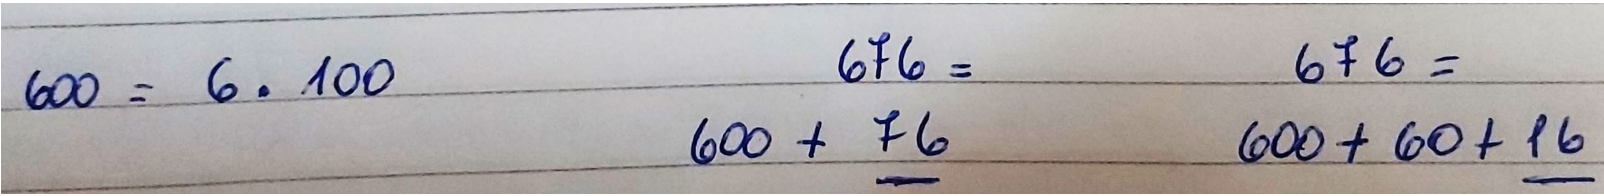 600 = 6 · 100
676 =
600 + 76
676 =
600 + 60 + 16